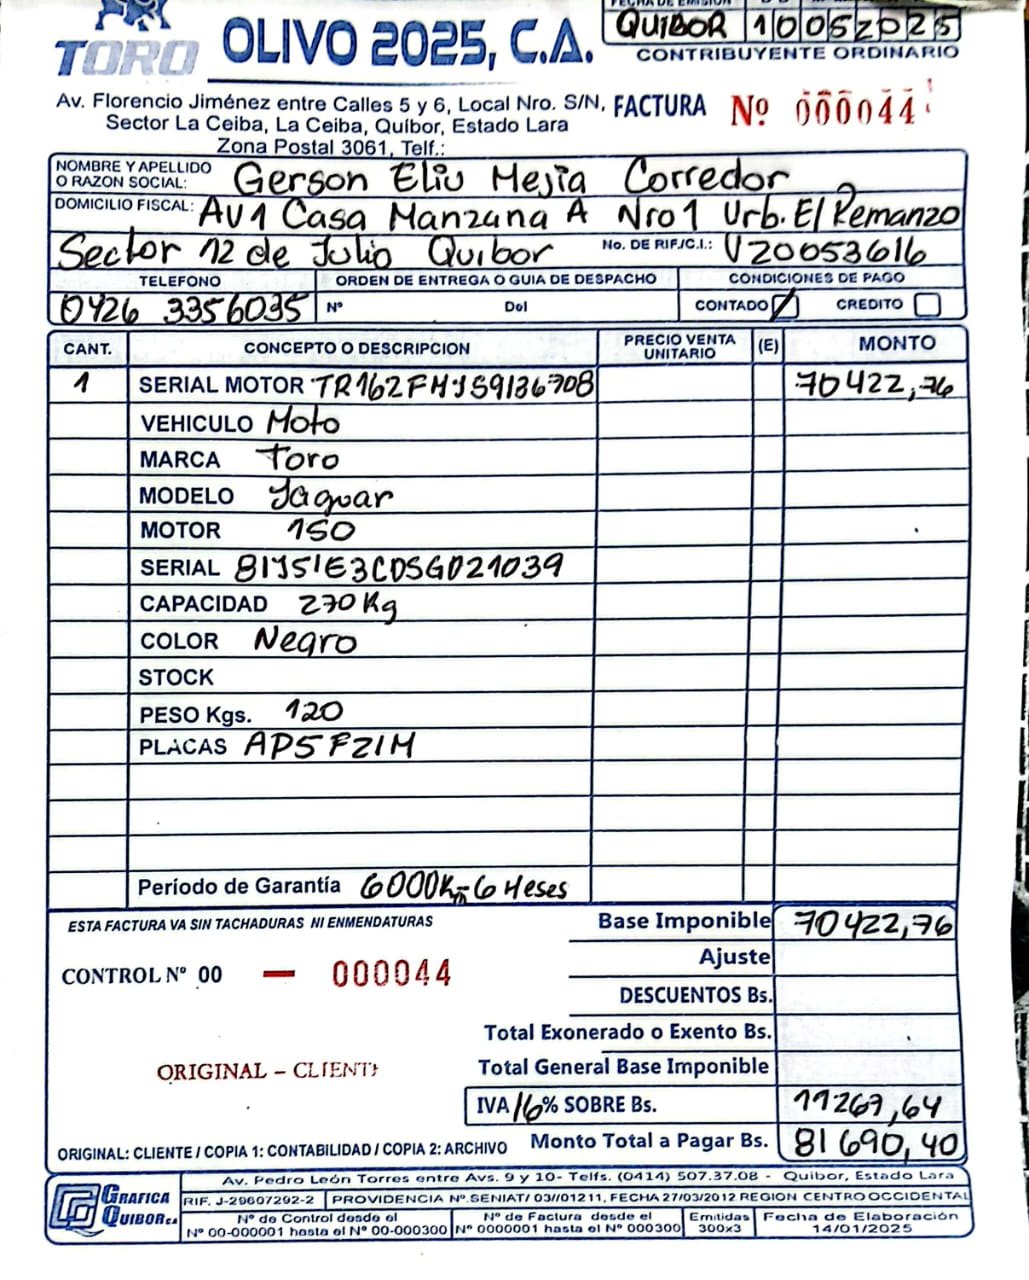 TORO
OLIVO 2025, C.A.
QUIBOR 10052025
CONTRIBUYENTE ORDINARIO
Av. Florencio Jiménez entre Calles 5 y 6, Local Nro. S/N,
Sector La Ceiba, La Ceiba, Quíbor, Estado Lara
Zona Postal 3061, Telf.:
FACTURA Nº 000044
NOMBRE Y APELLIDO O RAZON SOCIAL: Gerson Eliu Mejia Corredor
DOMICILIO FISCAL: AV 1 Casa Manzana A Nro 1 Urb. El Remanzo
Sector 12 de Julio Quibor No. DE RIF./C.I.: V20053616
TELEFONO ORDEN DE ENTREGA O GUIA DE DESPACHO CONDICIONES DE PAGO
0426 3356035 Nº Del CONTADO CREDITO
CANT. CONCEPTO O DESCRIPCION PRECIO VENTA UNITARIO (E) MONTO
1 SERIAL MOTOR TR162FMJS9136708 70422,76
VEHICULO Moto
MARCA Toro
MODELO Jaguar
MOTOR 150
SERIAL
CAPACIDAD 270 Kg
COLOR Negro
STOCK
PESO Kgs. 120
PLACAS AP5F21M
Período de Garantía 6000Km 6 Meses
ESTA FACTURA VA SIN TACHADURAS NI ENMENDATURAS
Base Imponible 70422,76
Ajuste
CONTROL Nº 00 — 000044
DESCUENTOS Bs.
Total Exonerado o Exento Bs.
ORIGINAL - CLIENTE
Total General Base Imponible
IVA 16% SOBRE Bs. 11267,64
Monto Total a Pagar Bs. 81690,40
ORIGINAL: CLIENTE / COPIA 1: CONTABILIDAD / COPIA 2: ARCHIVO
GRAFICA QUIBOR C.A.
Av. Pedro León Torres entre Avs. 9 y 10- Telfs. (0414) 507.37.08 - Quibor, Estado Lara
RIF. J-29607292-2 PROVIDENCIA Nº.SENIAT/ 03//01211, FECHA 27/03/2012 REGION CENTROOCCIDENTAL
Nº de Control desde el Nº 00-000001 hasta el Nº 00-000300
Nº de Factura desde el Nº 0000001 hasta el Nº 000300
Emitidas 300x3
Fecha de Elaboración 14/01/2025